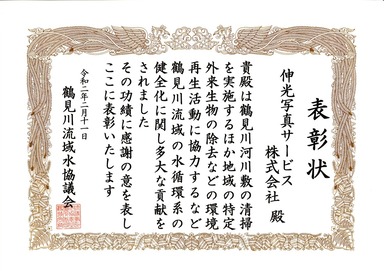 表彰状
伸光写真サービス
株式会社 殿
貴殿は鶴見川河川敷の清掃
を実施するほか地域の特定
外来生物の除去などの環境
再生活動に協力するなど
鶴見川流域の水循環系の
健全化に関し多大な貢献を
されました
その功績に感謝の意を表し
ここに表彰いたします
令和二年二月十一日
鶴見川流域水協議会